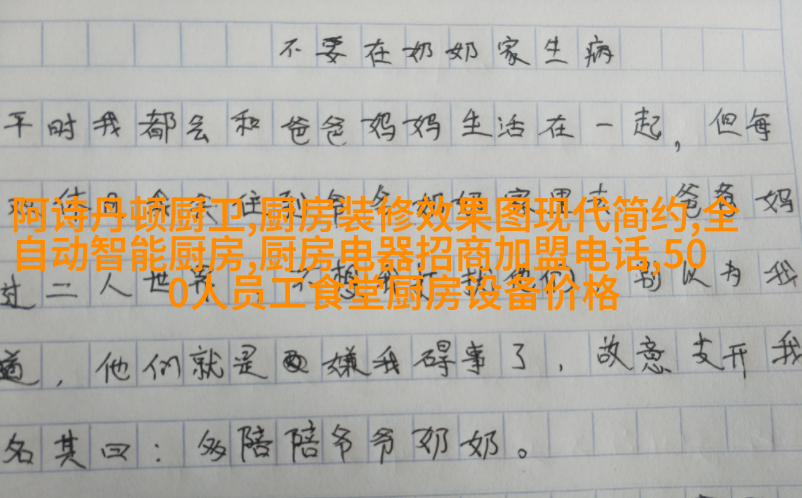 不要在奶奶家生病
平时我都会和爸爸妈妈生活在一起，但每
爸爸妈
阿诗丹顿厨卫,厨房装修效果图现代简约,全
自动智能厨房,厨房电器招商加盟电话,50
0人员工食堂厨房设备价格
过二人世界 别以为我
道，他们就是嫌我碍事了，故意支开我
名其曰：多陪陪爷爷奶奶。